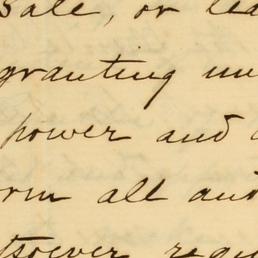 Sale, or lea
granting un
power and a
orm all and
tsoever requ